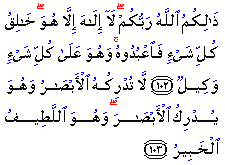 ذَٰلِكُمُ ٱللَّهُ رَبُّكُمْ ۖ لَآ إِلَـٰهَ إِلَّا هُوَ ۖ خَـٰلِقُ
كُلِّ شَىْءٍ فَٱعْبُدُوهُ ۚ وَهُوَ عَلَىٰ كُلِّ شَىْءٍ
وَكِيلٌ ﴿١٠٢﴾ لَّا تُدْرِكُهُ ٱلْأَبْصَـٰرُ وَهُوَ
يُدْرِكُ ٱلْأَبْصَـٰرَ ۖ وَهُوَ ٱللَّطِيفُ
ٱلْخَبِيرُ ﴿١٠٣﴾